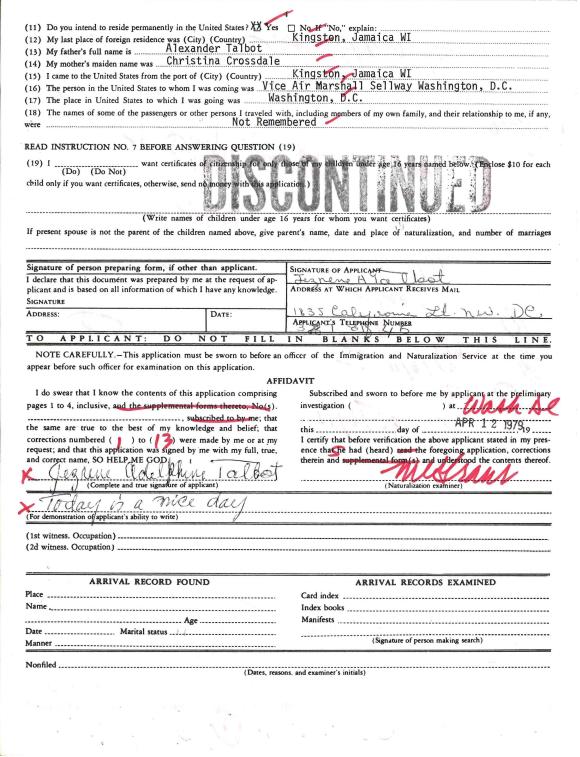 (11) Do you intend to reside permanently in the United States? XX Yes ☐ No If "No," explain:
(12) My last place of foreign residence was (City) (Country) Kingston, Jamaica WI
(13) My father's full name is Alexander Talbot
(14) My mother's maiden name was Christina Crossdale
(15) I came to the United States from the port of (City) (Country) Kingston, Jamaica WI
(16) The person in the United States to whom I was coming was Vice Air Marshall Sellway Washington, D.C.
(17) The place in the United States to which I was going was Washington, D.C.
(18) The names of some of the passengers or other persons I traveled with, including members of my own family, and their relationship to me, if any,
were Not Remembered
READ INSTRUCTION NO. 7 BEFORE ANSWERING QUESTION (19)
(19) I want certificates of citizenship for only those of my children under age 16 years named below. (Enclose $10 for each
(Do) (Do Not)
child only if you want certificates, otherwise, send no money with this application.)
DISCONTINUED
(Write names of children under age 16 years for whom you want certificates)
If present spouse is not the parent of the children named above, give parent's name, date and place of naturalization, and number of marriages
Signature of person preparing form, if other than applicant.
I declare that this document was prepared by me at the request of applicant and is based on all information of which I have any knowledge.
SIGNATURE
ADDRESS: DATE:
SIGNATURE OF APPLICANT
ADDRESS AT WHICH APPLICANT RECEIVES MAIL
1835 St. N.W. DC.
APPLICANT'S TELEPHONE NUMBER
TO APPLICANT: DO NOT FILL IN BLANKS BELOW THIS LINE.
NOTE CAREFULLY.—This application must be sworn to before an officer of the Immigration and Naturalization Service at the time you
appear before such officer for examination on this application.
AFFIDAVIT
I do swear that I know the contents of this application comprising
pages 1 to 4, inclusive, and the supplemental forms thereto, No(s).
subscribed to by me; that
the same are true to the best of my knowledge and belief; that
corrections numbered ( 1 ) to ( 13 ) were made by me or at my
request; and that this application was signed by me with my full, true,
and correct name, SO HELP ME GOD.
X Talbot
(Complete and true signature of applicant)
X Today is a nice day
(For demonstration of applicant's ability to write)
Subscribed and sworn to before me by applicant at the preliminary
investigation ( ) at Wash DC
this day of APR 12 1979, 19
I certify that before verification the above applicant stated in my presence
that She had (heard) read the foregoing application, corrections
therein and supplemental form(s) and understood the contents thereof.
(Naturalization examiner)
(1st witness. Occupation)
(2d witness. Occupation)
ARRIVAL RECORD FOUND
Place
Name
Age
Date Marital status
Manner
ARRIVAL RECORDS EXAMINED
Card index
Index books
Manifests
(Signature of person making search)
Nonfiled
(Dates, reasons, and examiner's initials)